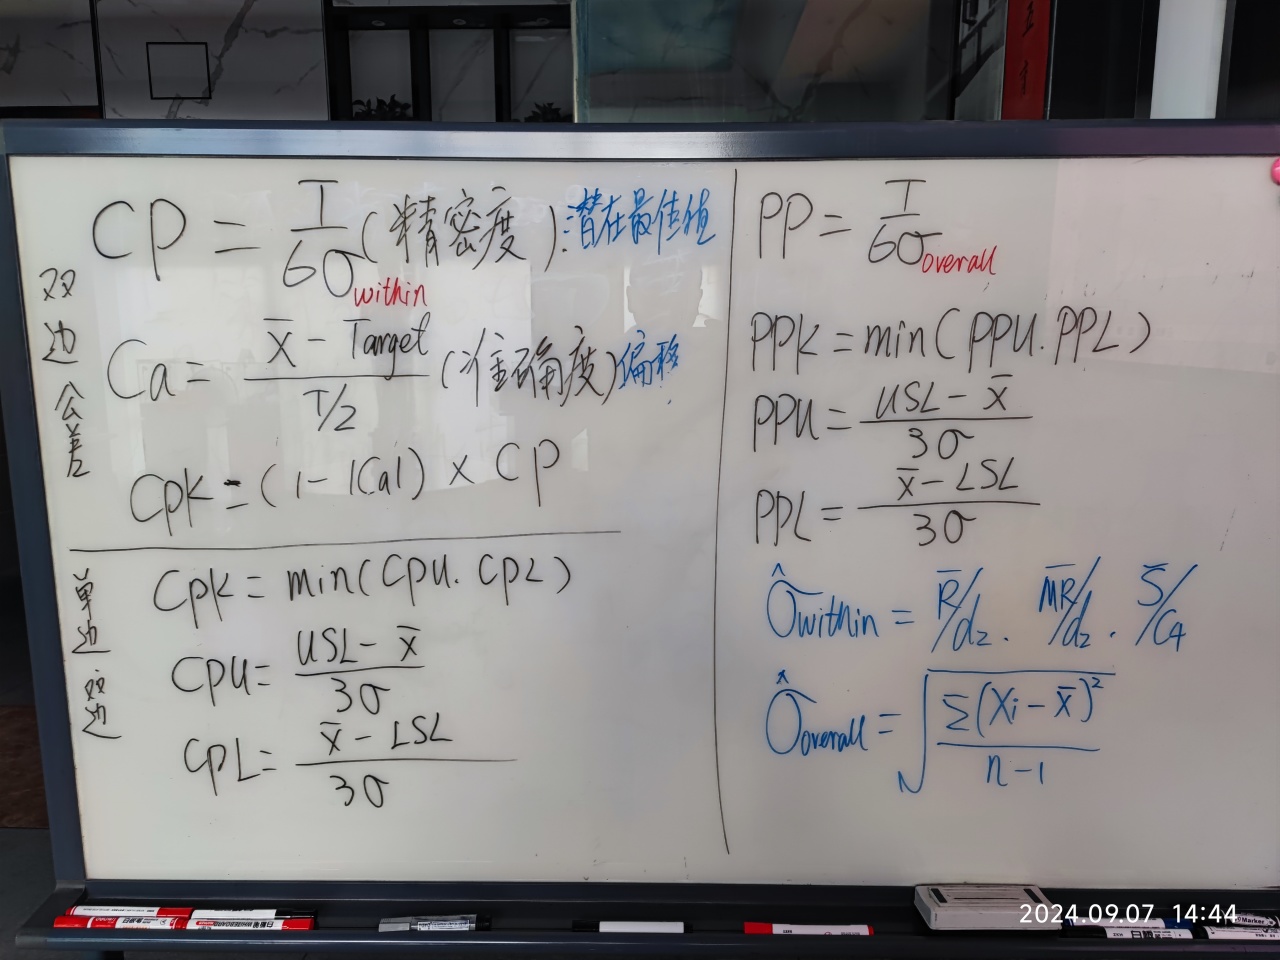 双边公差
CP = T/6σ within (精密度): 潜在最佳值
Ca = (x̄ - Target)/(T/2) (准确度) 偏移
CpK = (1 - |Ca|) × CP
单边 双边
CpK = min(CpU. CpL)
CpU = (USL - x̄)/3σ
CpL = (x̄ - LSL)/3σ
PP = T/6σ overall
PPK = min(PPU. PPL)
PPU = (USL - x̄)/3σ
PPL = (x̄ - LSL)/3σ
σ̂within = R̄/d2. M̄R̄/d2. S̄/C4
σ̂overall = √(Σ(Xi - x̄)²/(n-1))
2024.09.07 14:44